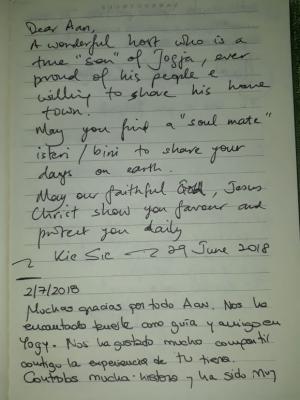 Dear Aan,
A wonderful host who is a
true "son" of Jogja, ever
proud of his people &
willing to share his home
town.
May you find a "soul mate"
isteri / bini to share your
days on earth.
May our faithful God, Jesus
Christ show you favour and
protect you daily
~ Kie Sic ~ 29 June 2018
2/7/2018
Muchas gracias por todo Aan. Nos ha
encantado tenerte como guía y amigo en
Yogy. Nos ha gustado mucho compartir
contigo la experiencia de tu tierra.
Controlas mucha historia y ha sido muy